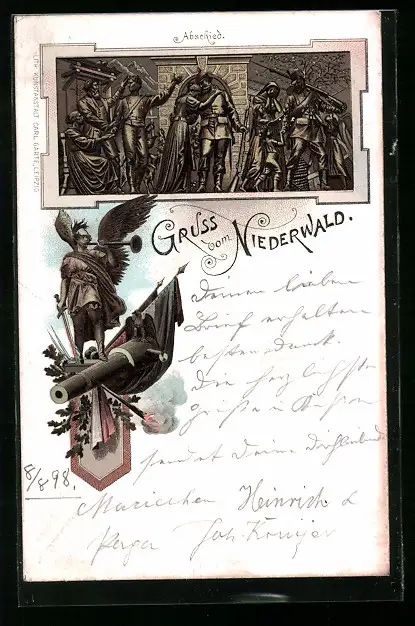 Abschied.
LITH. KUNSTANSTALT CARL GARTE, LEIPZIG
GRUSS vom NIEDERWALD.
Deinen lieben
Brief erhalten
besten Dank.
Die herzlichsten
Grüße u. Küsse
sendet Deine Dichliebende
8/8 98.
Mariechen Heinrich &
Joh.